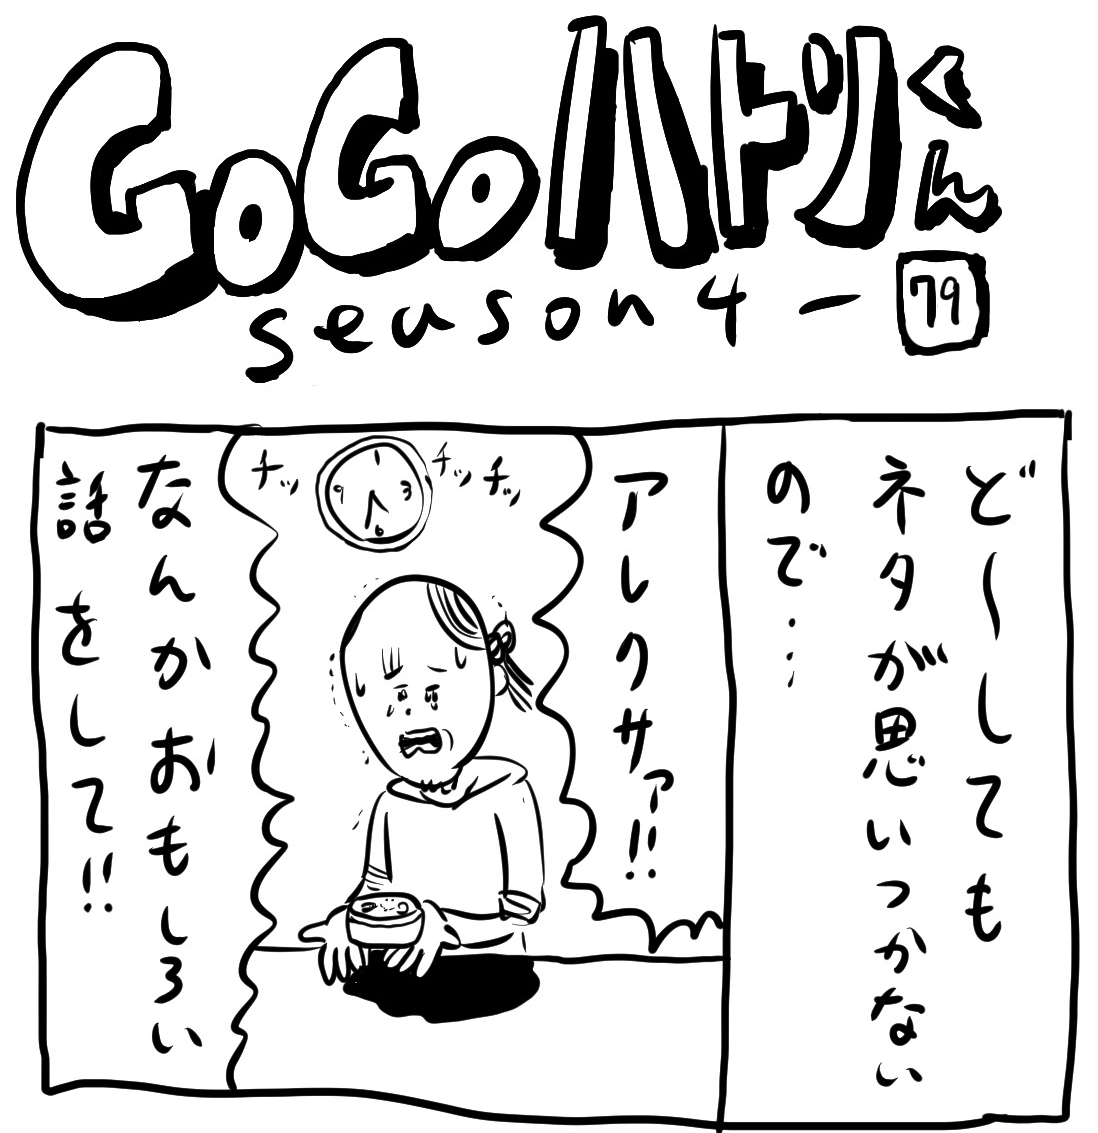 GoGoハトリくん
season 4 ー 79
ど〜しても
ネタが思いつかない
ので…
アレクサァ!!
チッ
チッチッ
9 3 6
なんかおもしろい
話をして!!